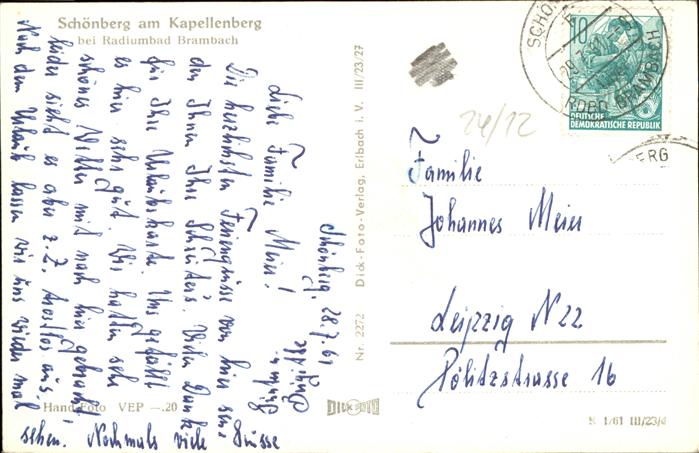 Schönberg am Kapellenberg
bei Radiumbad Brambach
Schönberg, 28.7.61
Liebe Familie Meier!
Die herzlichsten Feriengrüsse von hier sen-
den Ihnen Ihre Schüter's. Vielen Dank
für Ihre Urlaubskarte. Uns gefällt
es hier sehr gut. Wir hatten sehr
schönes Wetter mit nach hier gebracht,
leider sieht es aber z. Z. trostlos aus.
Nach dem Urlaub lassen wir uns wieder mal
sehen. Nochmals viele Grüsse
Brigitte
Hand-Foto VEP —.20
Nr. 2272 Dick-Foto-Verlag, Erlbach i. V. III/23/27
DICK FOTO
24/12
10
DEUTSCHE
DEMOKRATISCHE REPUBLIK
BRAMBACH
ERG
Familie
Johannes Meier
Leipzig N 22
Pölitzstrasse 16
S 1/61 III/23/4